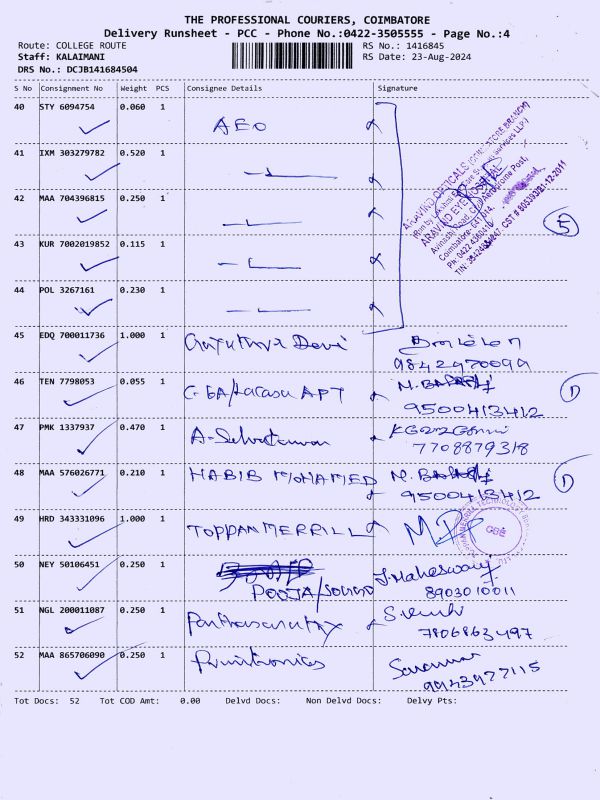 THE PROFESSIONAL COURIERS, COIMBATORE
Delivery Runsheet - PCC - Phone No.:0422-3505555 - Page No.:4
Route: COLLEGE ROUTE RS No.: 1416845
Staff: KALAIMANI RS Date: 23-Aug-2024
DRS No.: DCJB141684504
S No Consignment No Weight PCS Consignee Details Signature
40 STY 6094754 0.060 1 AEO
ARAVIND OPTICALS (COIMBATORE BRANCH)
ARAVIND EYE HOSPITAL
Avinashi Road, Civil Aerodrome Post,
Coimbatore- 641 014.
41 IXM 303279782 0.520 1
42 MAA 704396815 0.250 1
5
43 KUR 7002019852 0.115 1
44 POL 3267161 0.230 1
45 EDQ 700011736 1.000 1 Devi
9842970099
46 TEN 7798053 0.055 1 APT
9500413412 1
47 PMK 1337937 0.470 1
7708879318
48 MAA 576026771 0.210 1 HABIB MOHAMED
9500413412 1
49 HRD 343331096 1.000 1 TOPPAN MERRILL
CBE
50 NEY 50106451 0.250 1 J. Maheswary
POOJA 8903010011
51 NGL 200011087 0.250 1 Parthasarathy
7806863497
52 MAA 865706090 0.250 1 Saravanan
9943977115
Tot Docs: 52 Tot COD Amt: 0.00 Delvd Docs: Non Delvd Docs: Delvy Pts: